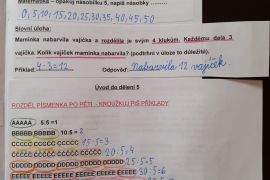 Matematika – opakuj násobilku 5, napiš násobky
0, 5, 10, 15, 20, 25, 30, 35, 40, 45, 50
Slovní úloha:
Maminka nabarvila vajíčka a rozdělila je svým 4 klukům. Každému dala 3
vajíčka. Kolik vajíček maminka nabarvila? (podtrhni v úloze to důležité).
Příklad 4·3=12 Odpověď: Nabarvila 12 vajíček.
Úvod do dělení 5
ROZDĚL PÍSMENKA PO PĚTI – KROUŽKUJ PIŠ PŘÍKLADY
AAAAA 5:5=1
BBBBB BBBBB 10:5=2
CCCCC CCCCC CCCCC 15:5=3
20:5=4
25:5=5
30:5=6